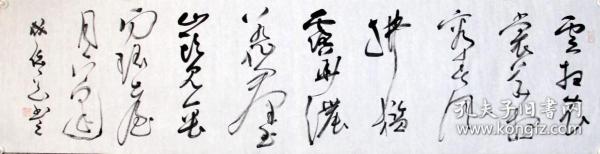 云想衣
裳花想
容春风
拂槛
露华浓
若非群玉
山头见会
向瑶台
月下逢
孔夫子旧书网
www.kongfz.com